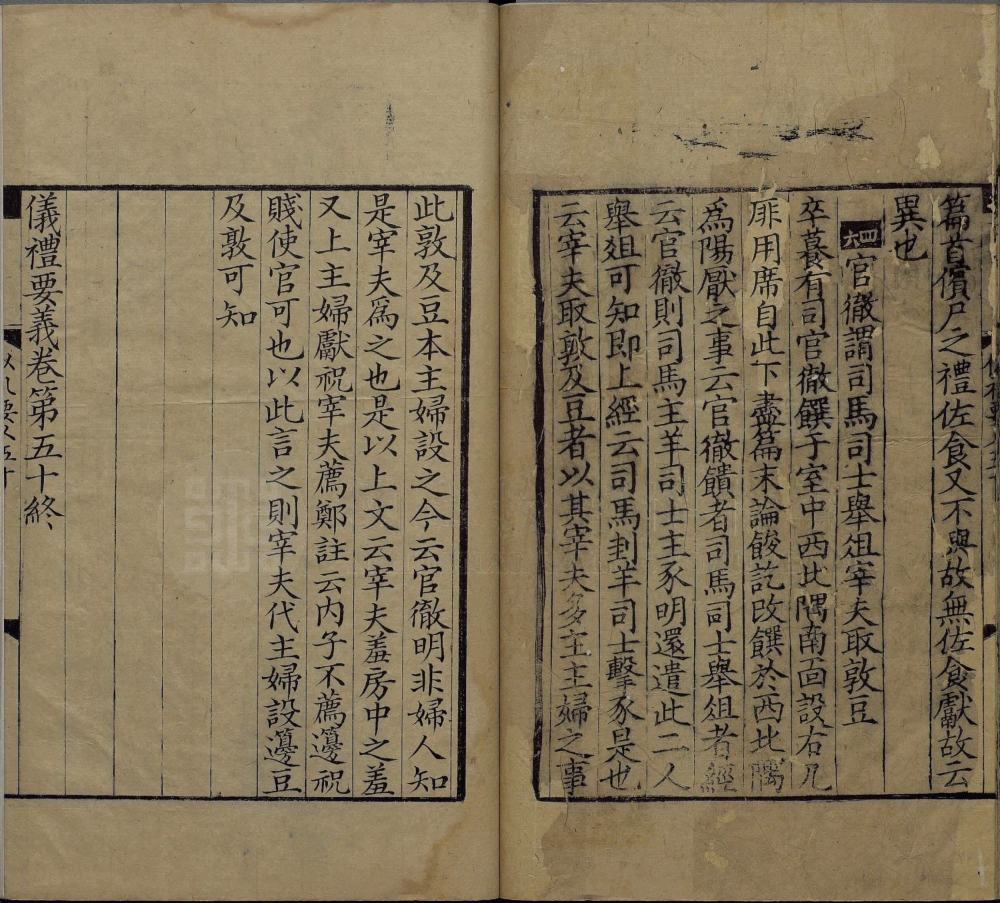 篇首儐尸之禮佐食又不與故無佐食獻故云
異也
四六官徹謂司馬司士舉俎宰夫取敦豆
卒暮有司官徹饌于室中西北隅南面設右几
厞用席自此下盡篇末論餕訖改饌於西北隅
爲陽厭之事云官徹饋者司馬司士舉俎者經
云官徹則司馬主羊司士主豕明還遣此二人
舉俎可知即上經云司馬刲羊司士擊豕是也
云宰夫取敦及豆者以其宰夫多主主婦之事
此敦及豆本主婦設之今云官徹明非婦人知
是宰夫爲之也是以上文云宰夫羞房中之羞
又上主婦獻祝宰夫薦鄭註云内子不薦籩祝
賤使官可也以此言之則宰夫代主婦設籩豆
及敦可知
儀禮要義卷第五十終